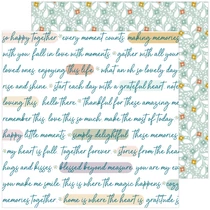 so happy together • every moment counts • making memories
with you • fall in love with moments • gather with all your
loved ones • enjoying this life • what an oh so lovely day
rise and shine • start each day with a grateful heart
loving this • hello there • thankful for these amazing
remember this • love this so much • make the most of today
happy little moments • simply delightful • these memories
my heart is full • together forever • stories from the
hugs and kisses • blessed beyond measure • you are my
you make me smile • this is where the magic happens
memories together • home is where the heart is • gratefully